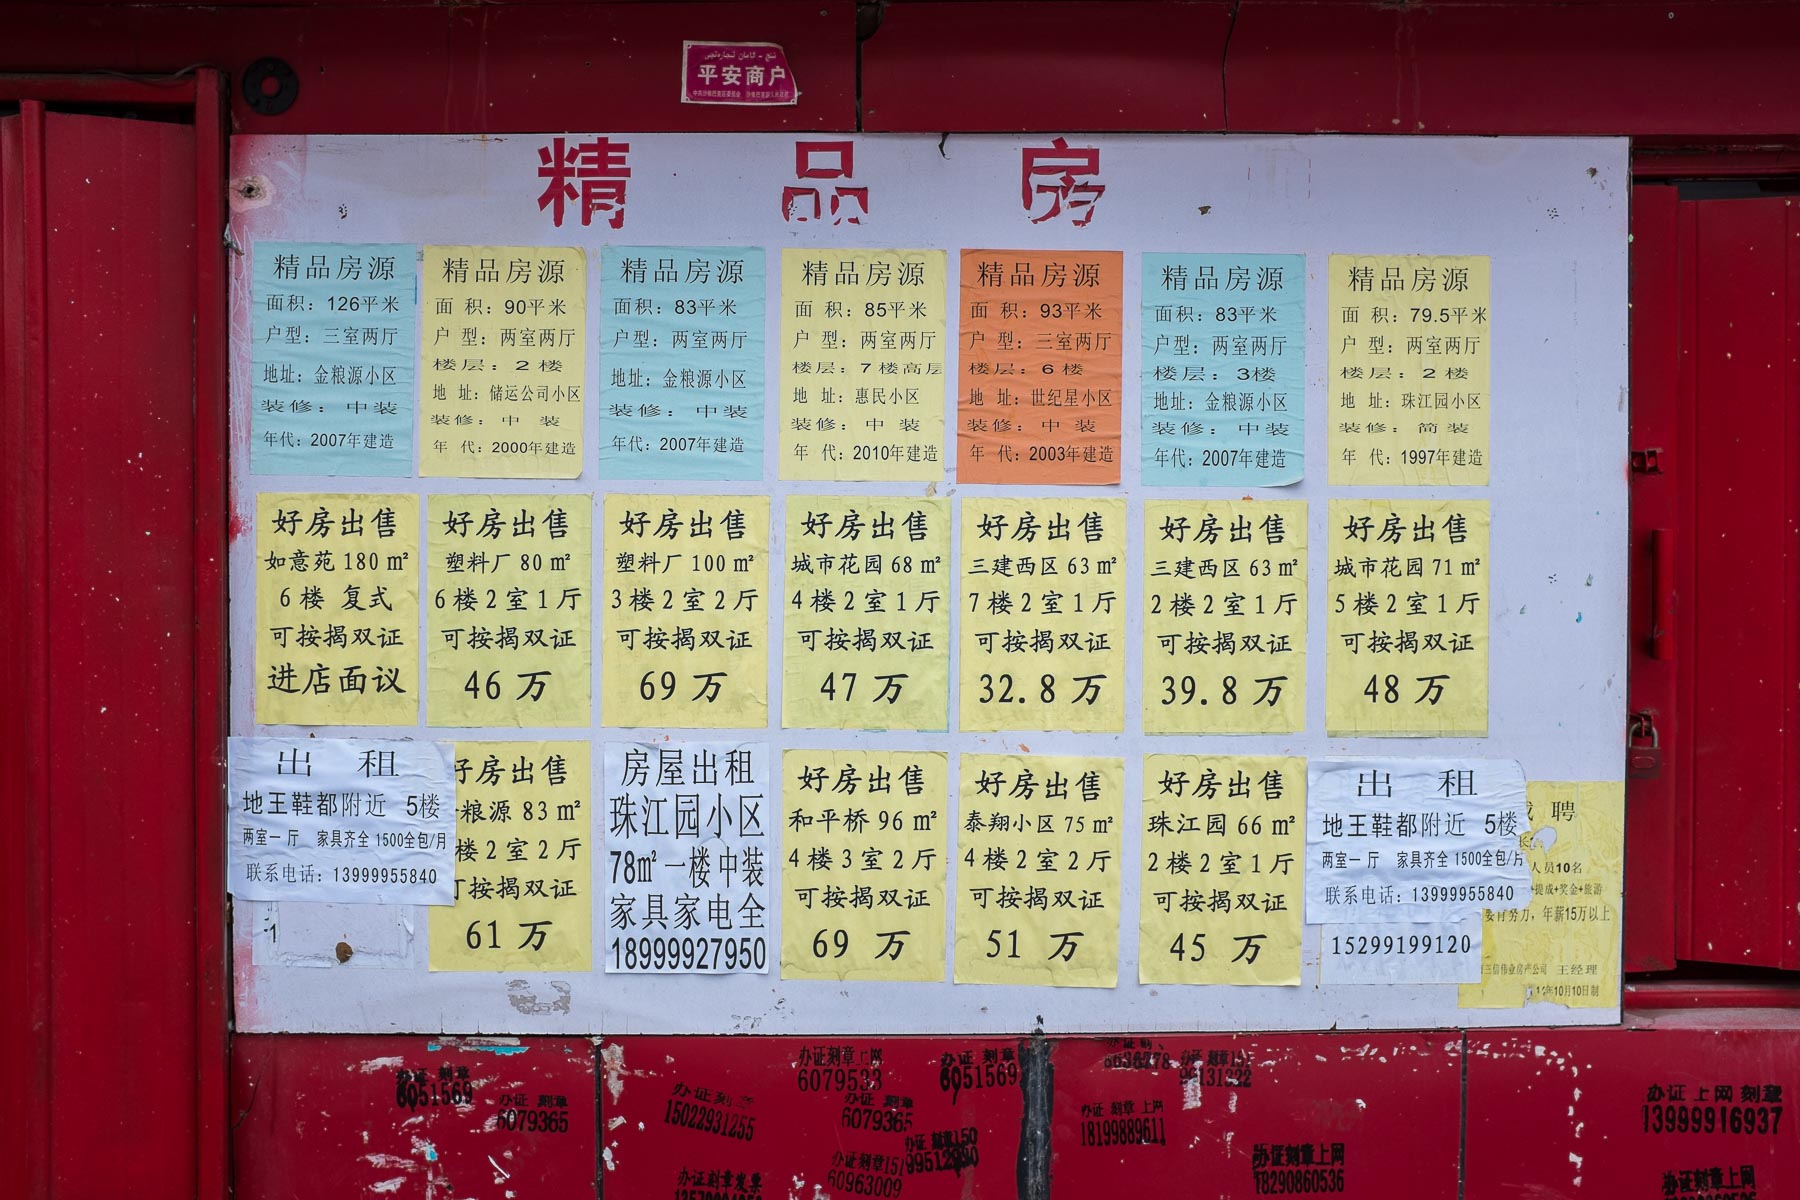 平安商户
精品房
精品房源
面积：126平米
户型：三室两厅
地址：金粮源小区
装修：中装
年代：2007年建造
精品房源
面 积：90平米
户 型：两室两厅
楼层：2 楼
地 址：储运公司小区
装修：中 装
年 代：2000年建造
精品房源
面积：83平米
户 型：两室两厅
地址：金粮源小区
装修：中装
年代：2007年建造
精品房源
面 积：85平米
户 型：两室两厅
楼层：7 楼高层
地 址：惠民小区
装修：中 装
年 代：2010年建造
精品房源
面 积：93平米
户 型：三室两厅
楼层：6 楼
地 址：世纪星小区
装修：中 装
年 代：2003年建造
精品房源
面积：83平米
户 型：两室两厅
楼层：3楼
地址：金粮源小区
装修：中装
年代：2007年建造
精品房源
面 积：79.5平米
户 型：两室两厅
楼层：2 楼
地 址：珠江园小区
装修：简装
年 代：1997年建造
好房出售
如意苑 180 m²
6 楼 复式
可按揭双证
进店面议
好房出售
塑料厂 80 m²
6 楼 2 室 1 厅
可按揭双证
46 万
好房出售
塑料厂 100 m²
3 楼 2 室 2 厅
可按揭双证
69 万
好房出售
城市花园 68 m²
4 楼 2 室 1 厅
可按揭双证
47 万
好房出售
三建西区 63 m²
7 楼 2 室 1 厅
可按揭双证
32.8 万
好房出售
三建西区 63 m²
2 楼 2 室 1 厅
可按揭双证
39.8 万
好房出售
城市花园 71 m²
5 楼 2 室 1 厅
可按揭双证
48 万
出 租
地王鞋都附近 5楼
两室一厅 家具齐全 1500全包/月
联系电话：13999955840
好房出售
粮源 83 m²
楼 2 室 2 厅
可按揭双证
61 万
房屋出租
珠江园小区
78㎡一楼中装
家具家电全
18999927950
好房出售
和平桥 96 m²
4 楼 3 室 2 厅
可按揭双证
69 万
好房出售
泰翔小区 75 m²
4 楼 2 室 2 厅
可按揭双证
51 万
好房出售
珠江园 66 m²
2 楼 2 室 1 厅
可按揭双证
45 万
出 租
地王鞋都附近 5楼
两室一厅 家具齐全 1500全包/月
联系电话：13999955840
15299199120
聘
人员10名
+提成+奖金+旅游
努力，年薪15万以上
三信伟业房产公司 王经理
年10月10日制
办证 刻章
6051569
办证 刻章
6079365
办证 刻章
15022931255
办证刻章上网
6079533
办证 刻章
6079365
办证 刻章
6051569
办证刻章
60963009
办证刻章发票
办证 刻章 上网
18199889611
办证刻章上网
18290860536
办证 上网 刻章
13999916937
办证刻章上网